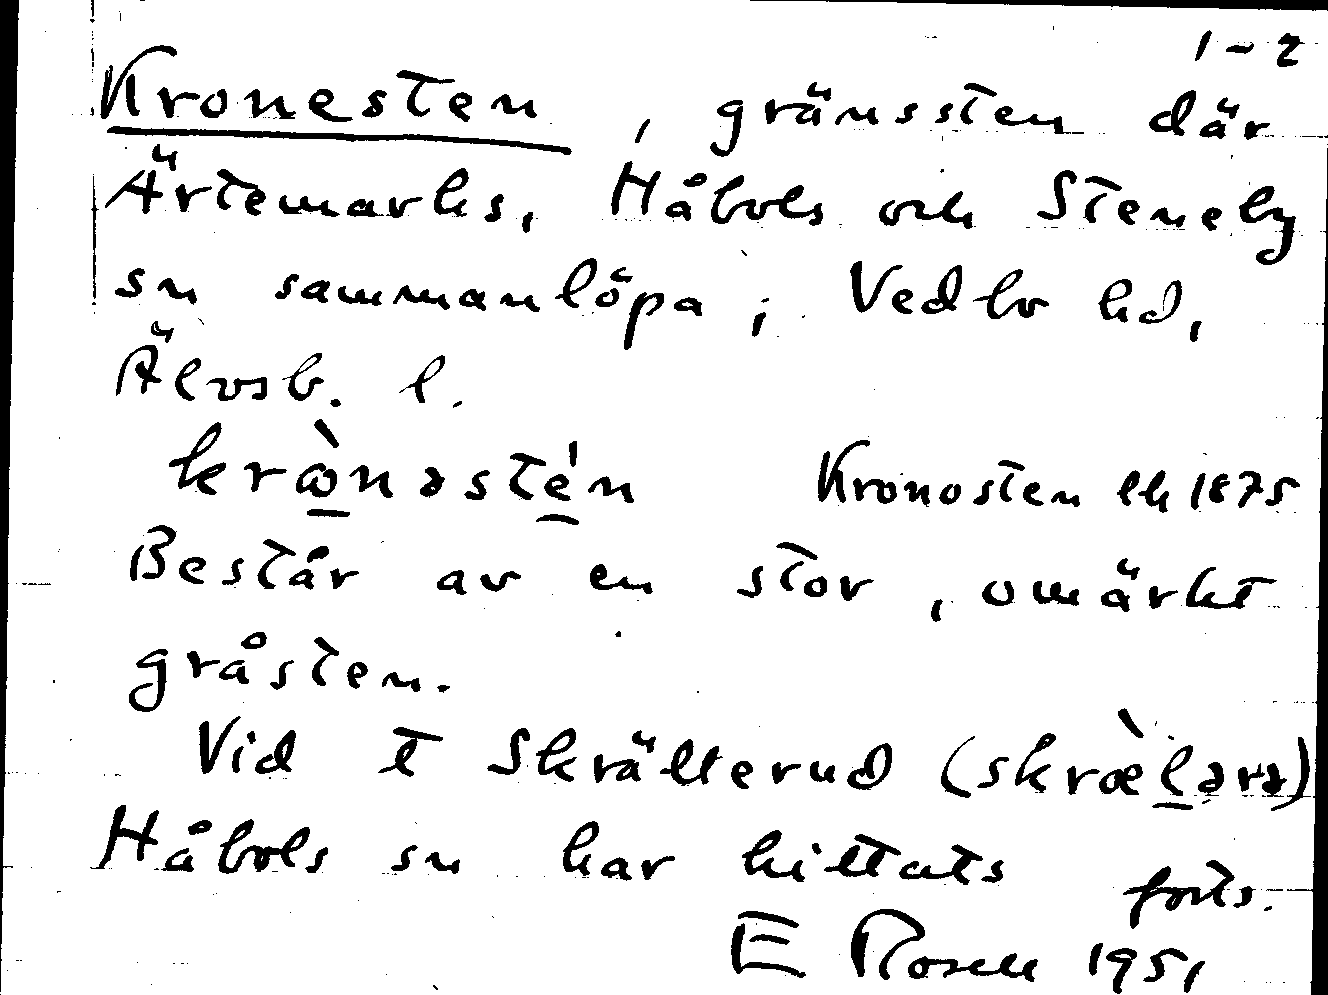 1-2
Kronesten, gränssten där
Ärtemarks, Håbols och Steneby
sn sammanlöpa; Vedbo hd,
Älvsb. l.
krὼnəsté̱n Kronosten ek 1875
Består av en stor, omärkt
gråsten.
Vid t Skrälterud (skræ̀lərə)
Håbols sn har hittats forts.
E Rosell 1951